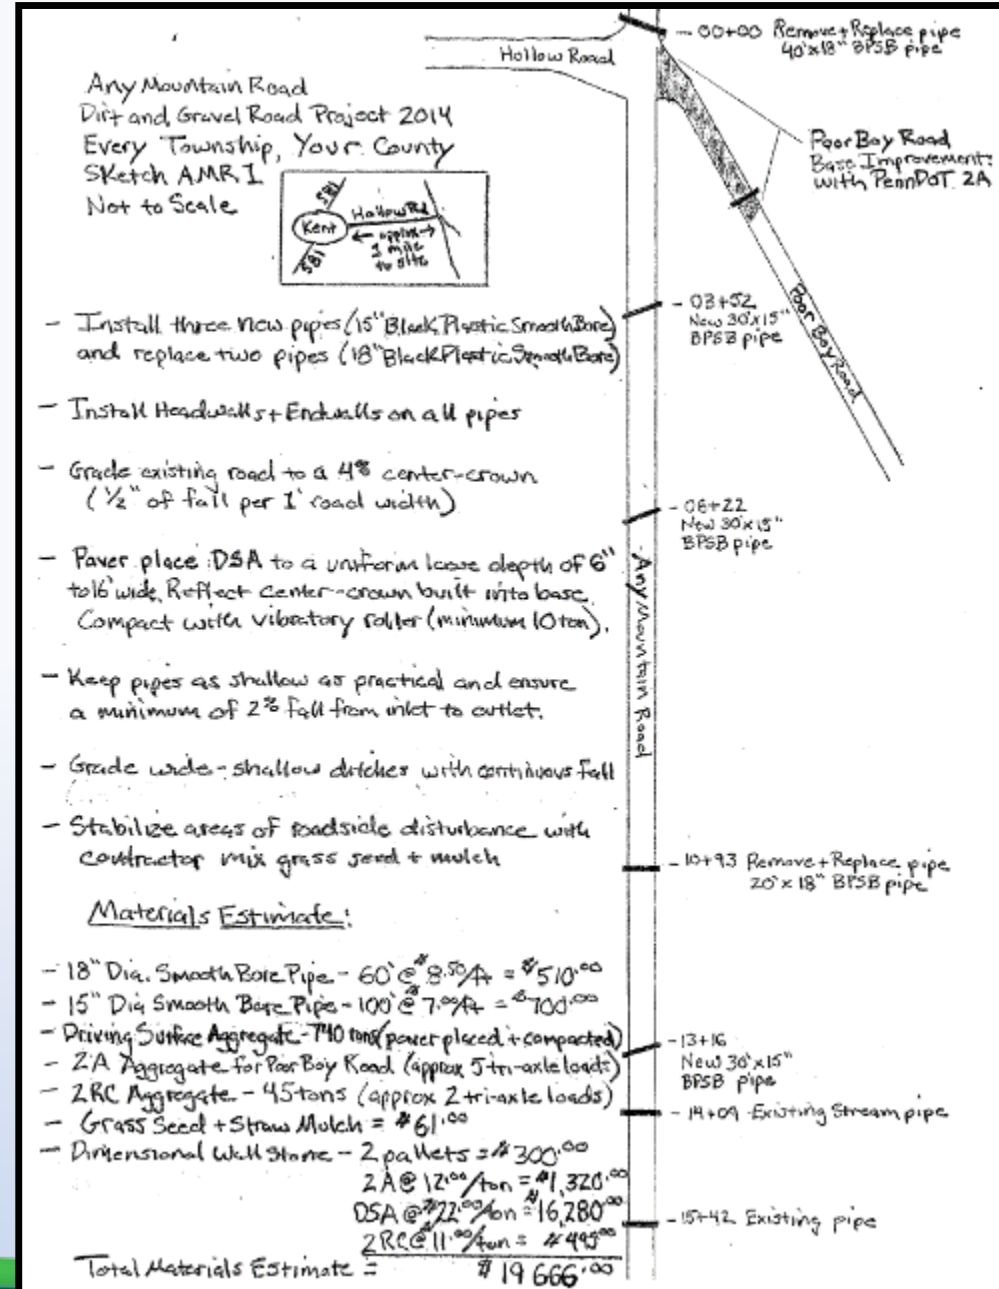 Any Mountain Road
Dirt and Gravel Road Project 2014
Every Township, Your County
Sketch AMR 1
Not to Scale
581
Kent
Hollow Rd
approx
1 mile
to site
581
- Install three new pipes (15" Black Plastic Smooth Bore)
and replace two pipes (18" Black Plastic Smooth Bore)
- Install Headwalls + Endwalls on all pipes
- Grade existing road to a 4% center-crown
(½" of fall per 1' road width)
- Paver place DSA to a uniform loose depth of 6"
to 16' wide. Reflect center-crown built into base.
Compact with vibratory roller (minimum 10 ton).
- Keep pipes as shallow as practical and ensure
a minimum of 2% fall from inlet to outlet.
- Grade wide-shallow ditches with continuous fall
- Stabilize areas of roadside disturbance with
contractor mix grass seed + mulch
Materials Estimate:
- 18" Dia. Smooth Bore Pipe - 60' @ $8.50/ft = $510.00
- 15" Dia Smooth Bore Pipe - 100' @ 7.00/ft = $700.00
- Driving Surface Aggregate - 740 tons (paver placed + compacted)
- 2A Aggregate for Poor Boy Road (approx 5 tri-axle loads)
- 2RC Aggregate - 45 tons (approx 2 tri-axle loads)
- Grass Seed + Straw Mulch = $61.00
- Dimensional Wall Stone - 2 pallets = $300.00
2A @ 12.00/ton = $1,320.00
DSA @ $22.00/ton = $16,280.00
2RC @ 11.00/ton = $495.00
Total Materials Estimate = $19 666.00
Hollow Road
- 00+00 Remove + Replace pipe
40'x18" BPSB pipe
Poor Boy Road
Base Improvements
with PennDOT 2A
- 03+52
New 30'x15"
BPSB pipe
Poor Boy Road
- 06+22
New 30'x15"
BPSB pipe
Any Mountain Road
- 10+93 Remove + Replace pipe
20'x18" BPSB pipe
- 13+16
New 30'x15"
BPSB pipe
- 14+09 Existing Stream pipe
- 15+42 Existing pipe